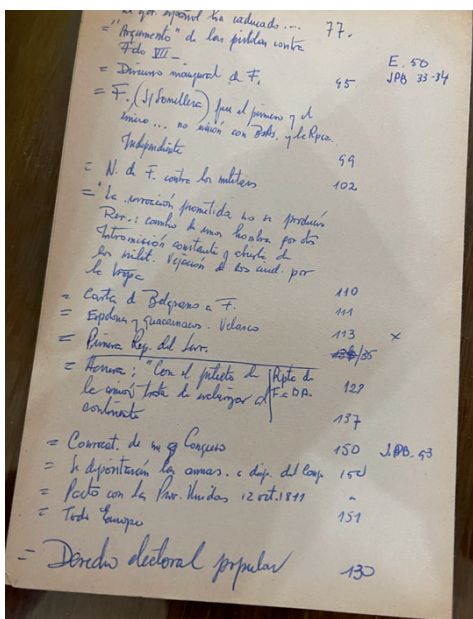 español ha caducado... 77.
= "Argumento" de las contra
Fdo VII — E. 50
= Discurso inaugural de F. 95 JPB 33-34
= F. (S/ Somellera) fue el primero y el
único... no unión con BsAs. y la Rpca.
Independiente 99
= N. de F. contra los militares 102
= "La prometida no se produce
Rev.: cambio de unos hombres por otros
Intromisión constante y de
los milit. Vejación de los ciud. por
la tropa 110
= Carta de Belgrano a F. 111
= Espdona y guaicuruces. Velasco 113 x
= Primera Rep. del Sur. /35
= Herrera: "Con el pretexto de Rpta de
la unión trata de esclavizar al F. a DA. 122
continente 137
= Convocat. de un g Congreso 150 JPB. 93
= Se depositarán las armas. a disp. del Cong. 150
= Pacto con las Prov. Unidas 12 oct. 1811 "
= Todo Europa 151
= Derecho electoral popular 130